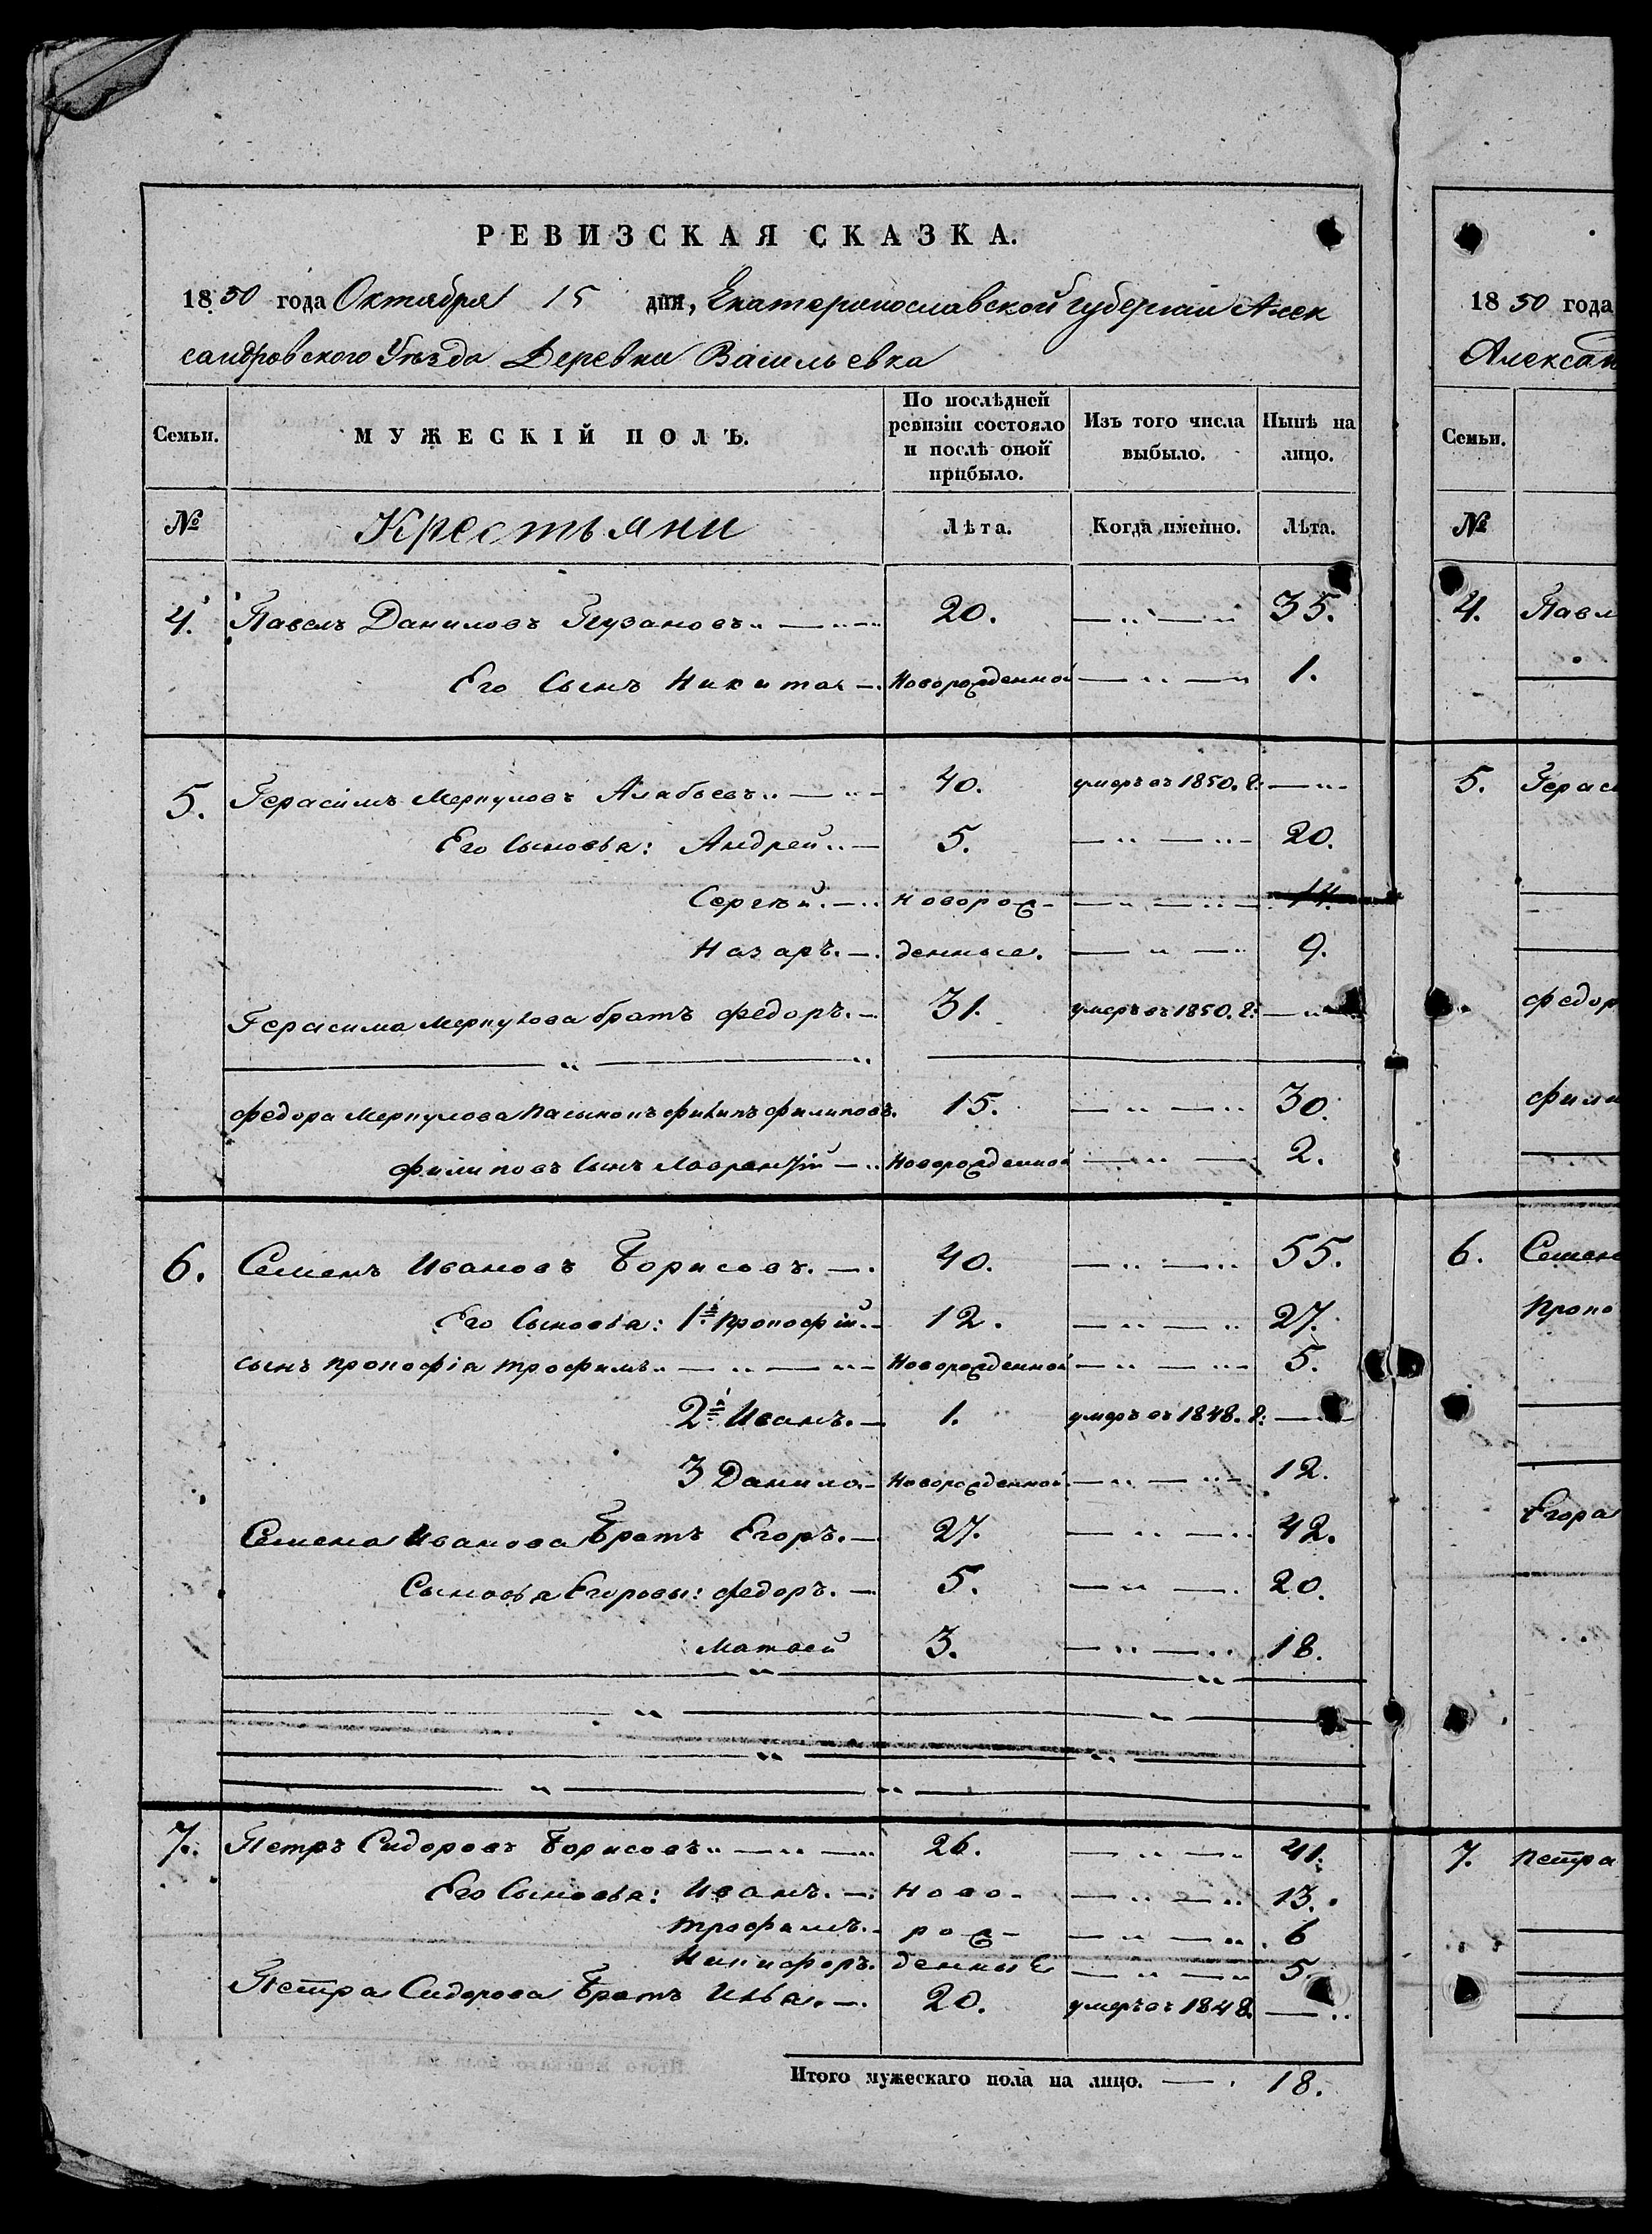 РЕВИЗСКАЯ СКАЗКА.
1850 года Октября 15 дня, Екатеринославской Губернии Алек
сандровского Уѣзда Деревни Васильевка
Семьи. МУЖЕСКІЙ ПОЛЪ. По послѣдней ревизіи состояло и послѣ оной прибыло. Изъ того числа выбыло. Нынѣ на лицо.
№ Крестьяни Лѣта. Когда именно. Лѣта.
4. Павелъ Даниловъ 20. 35.
Его Сынъ Никита Новорожденной 1.
5. Герасимъ Меркуловъ Алабьевъ 40. умеръ въ 1850. г:
Его Сыновья: Андрей 5. 20.
Сергѣй. новорож- 14.
Назаръ. денные. 9.
Герасима Меркулова братъ федоръ. 31. умеръ въ 1850. г:
федора Меркулова пасынокъ филипъ филиповъ. 15. 30.
филиповъ Сынъ Лаврентій Новорожденной 2.
6. Семенъ Ивановъ Борисовъ. 40. 55.
Его Сыновья: 1й Прокофій 12. 27.
сынъ прокофія трофимъ Новорожденной 5.
2й Иванъ. 1. умеръ въ 1848. г:
3 Данило Новорожденной 12.
Семена Иванова Братъ Егоръ. 27. 42.
Сыновья Егоровы: федоръ. 5. 20.
Матвей 3. 18.
7. Петръ Сидоровъ Борисовъ 26. 41.
Его Сыновья: Иванъ. ново- 13.
трофимъ. рож- 6
Никифоръ. денные 5.
Петра Сидорова Братъ Илья. 20. умеръ въ 1848.
Итого мужескаго пола на лицо. 18.
1850 года
Алексан
Семьи.
№
4. Павл
5. Гераси
федор
фили
6. Семен
Проко
Егора
7. Петра